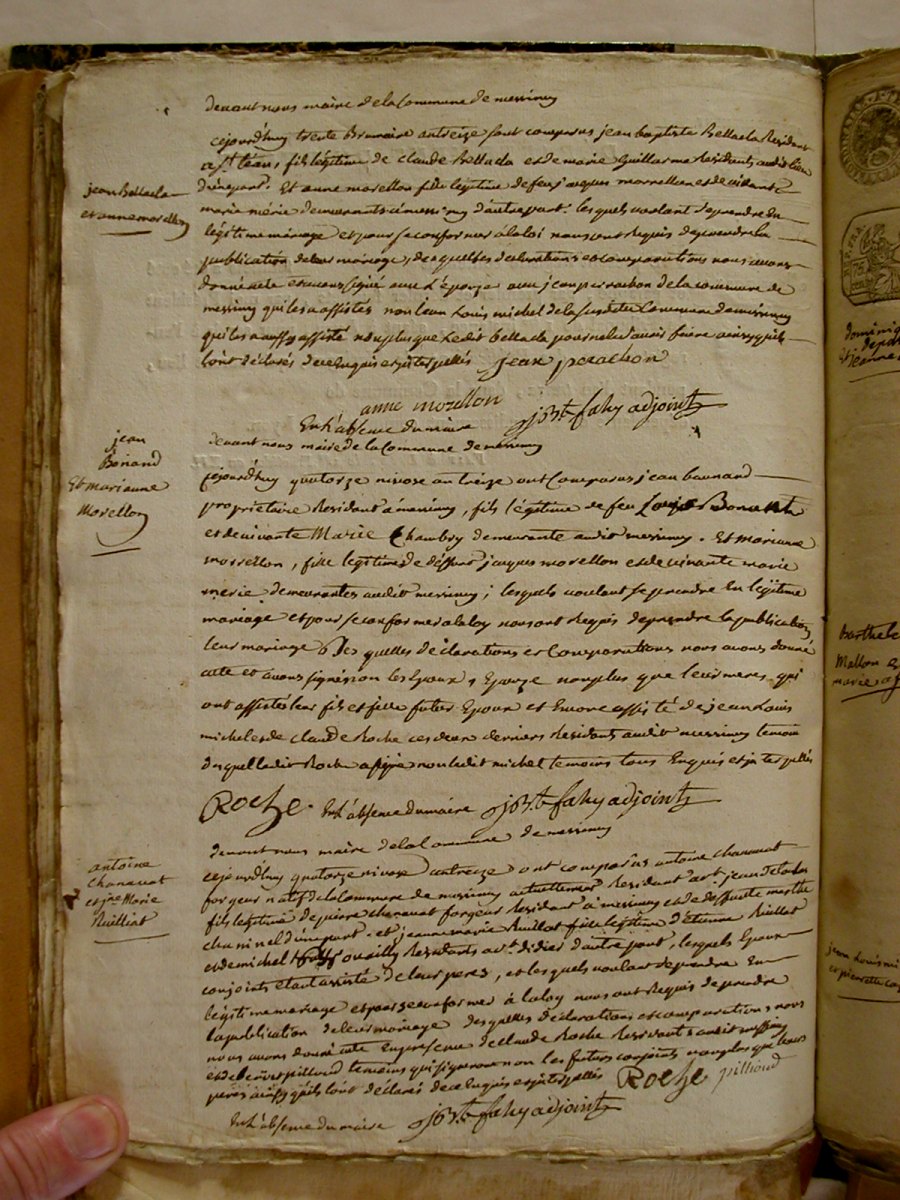 devant nous maire de la Commune de messimy
cejourdhuy trente Brumaire an treize sont comparus jean baptiste Bellacla Residant
a St. fils légitime de Claude Bellacla et de marie Guillarme Residants audit lieu
d'une part. Et anne morellon fille légitime de feu jacques morrellon et de vivante
marie mérie demeurants à messimy d'autre part. lesquels voulant se prendre en
légitime mariage et pour se conformer a la loi nous ont Requis de prendre la
publication de leur mariage, des quelles déclarations et Comparutions nous avons
donné acte et avons signé avec L'épouze avec jean perrachon de la commune de
messimy qui les a assistés non jean Louis michel de la susdite Commune de messimy
qui les a aussy assisté non plus que Ledit bellacla pour ne le savoir faire ainsy qu'ils
L'ont déclarés de ce Enquis et jnterpellés jean perachon
anne morellon
En L'absence du maire jbte fahy adjoint
devant nous maire de la Commune de messimy
cejourdhuy quatorze nivose an treize ont Comparus jean bonnand
propriétaire Residant à messimy, fils légitime de feu Bonnand
et de vivante Marie Chambry demeurante audit messimy. Et marianne
morrellon, fille legitime de deffunt jacques morellon et de vivante marie
merie demeurantes audit messimy; lesquels voulant se prendre En légitime
mariage et pour se conformer a la loy nous ont Requis de prendre la publication
leur mariage Des quelles déclarations et Comparutions nous avons donné
acte et avons signé non les Epoux, Epouze non plus que leurs meres qui
ont assistés leur fils et fille futurs Epoux et Encore assisté de jean Louis
michel et de Claude Roche ces deux derniers Residants audit messimy temoin
desquel ledit Roche a signé non ledit michel temoins tous Enquis et jnterpellés
Roche. En L'absence du maire jbte fahy adjoint
devant nous maire de la Commune de messimy
cejourdhuy quatorze nivose an treize ont comparus antoine chanavat
forgeur natif de la Commune de messimy actuellement Residant a
fils legitime de pierre chanavat forgeur Residant à messimy et de deffunte marthe
d'une part. et jeanne marie Ruillat fille légitime d'Etienne Ruillat
et de Residants a St. didier d'autre part, lesquels Epoux
conjoints Etant assisté de leurs peres, et lesquels voulant se prendre En
légitime mariage et pour se conformer à la loy nous ont Requis de prendre
la publication de leur mariage des quelles déclarations et comparutions nous
nous avons donné acte En presence de claude Roche Residant audit messimy
et de pillioud temoins qui signeront non les futurs conjoints non plus que leurs
peres ainsy qu'ils l'ont déclarés de ce Enquis et jnterpellés Roche pillioud
En L'absence du maire jbte fahy adjoint
jean Bellacla
et anne morellon
jean
Bonand
Et marianne
Morellon
antoine
Chanavat
et jne Marie
Ruilliat
jeanne
Barthele
Mallon
marie
jean Louis mi